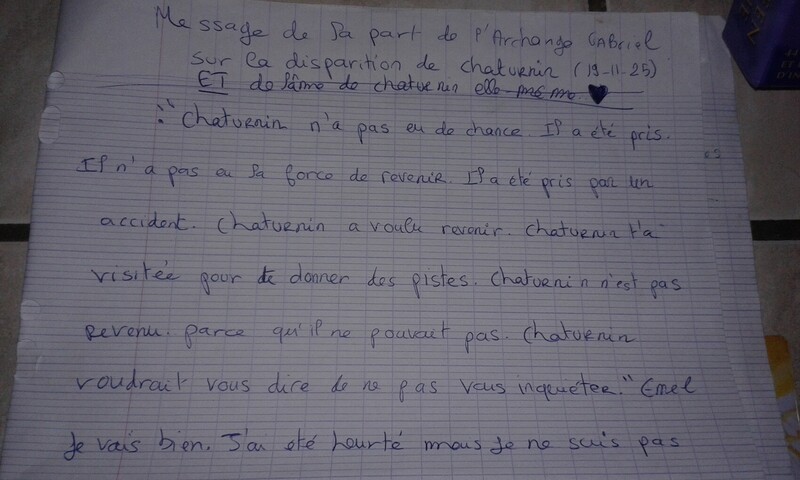 Message de la part de l'Archange GABRiel
sur la disparition de chatvenin (19-11-25)
ET de l'âme de chatvenin elle même
:" chatvenin n'a pas eu de chance. Il a été pris.
Il n'a pas eu la force de revenir. Il a été pris par un
accident. Chatvenin a voulu revenir. Chatvenin t'a
visitée pour te donner des pistes. Chatvenin n'est pas
Revenu. parce qu'il ne pouvait pas. Chatvenin
voudrait vous dire de ne pas vous inquéter." Emel
Je vais bien. J'ai été heurté mais Je ne suis pas